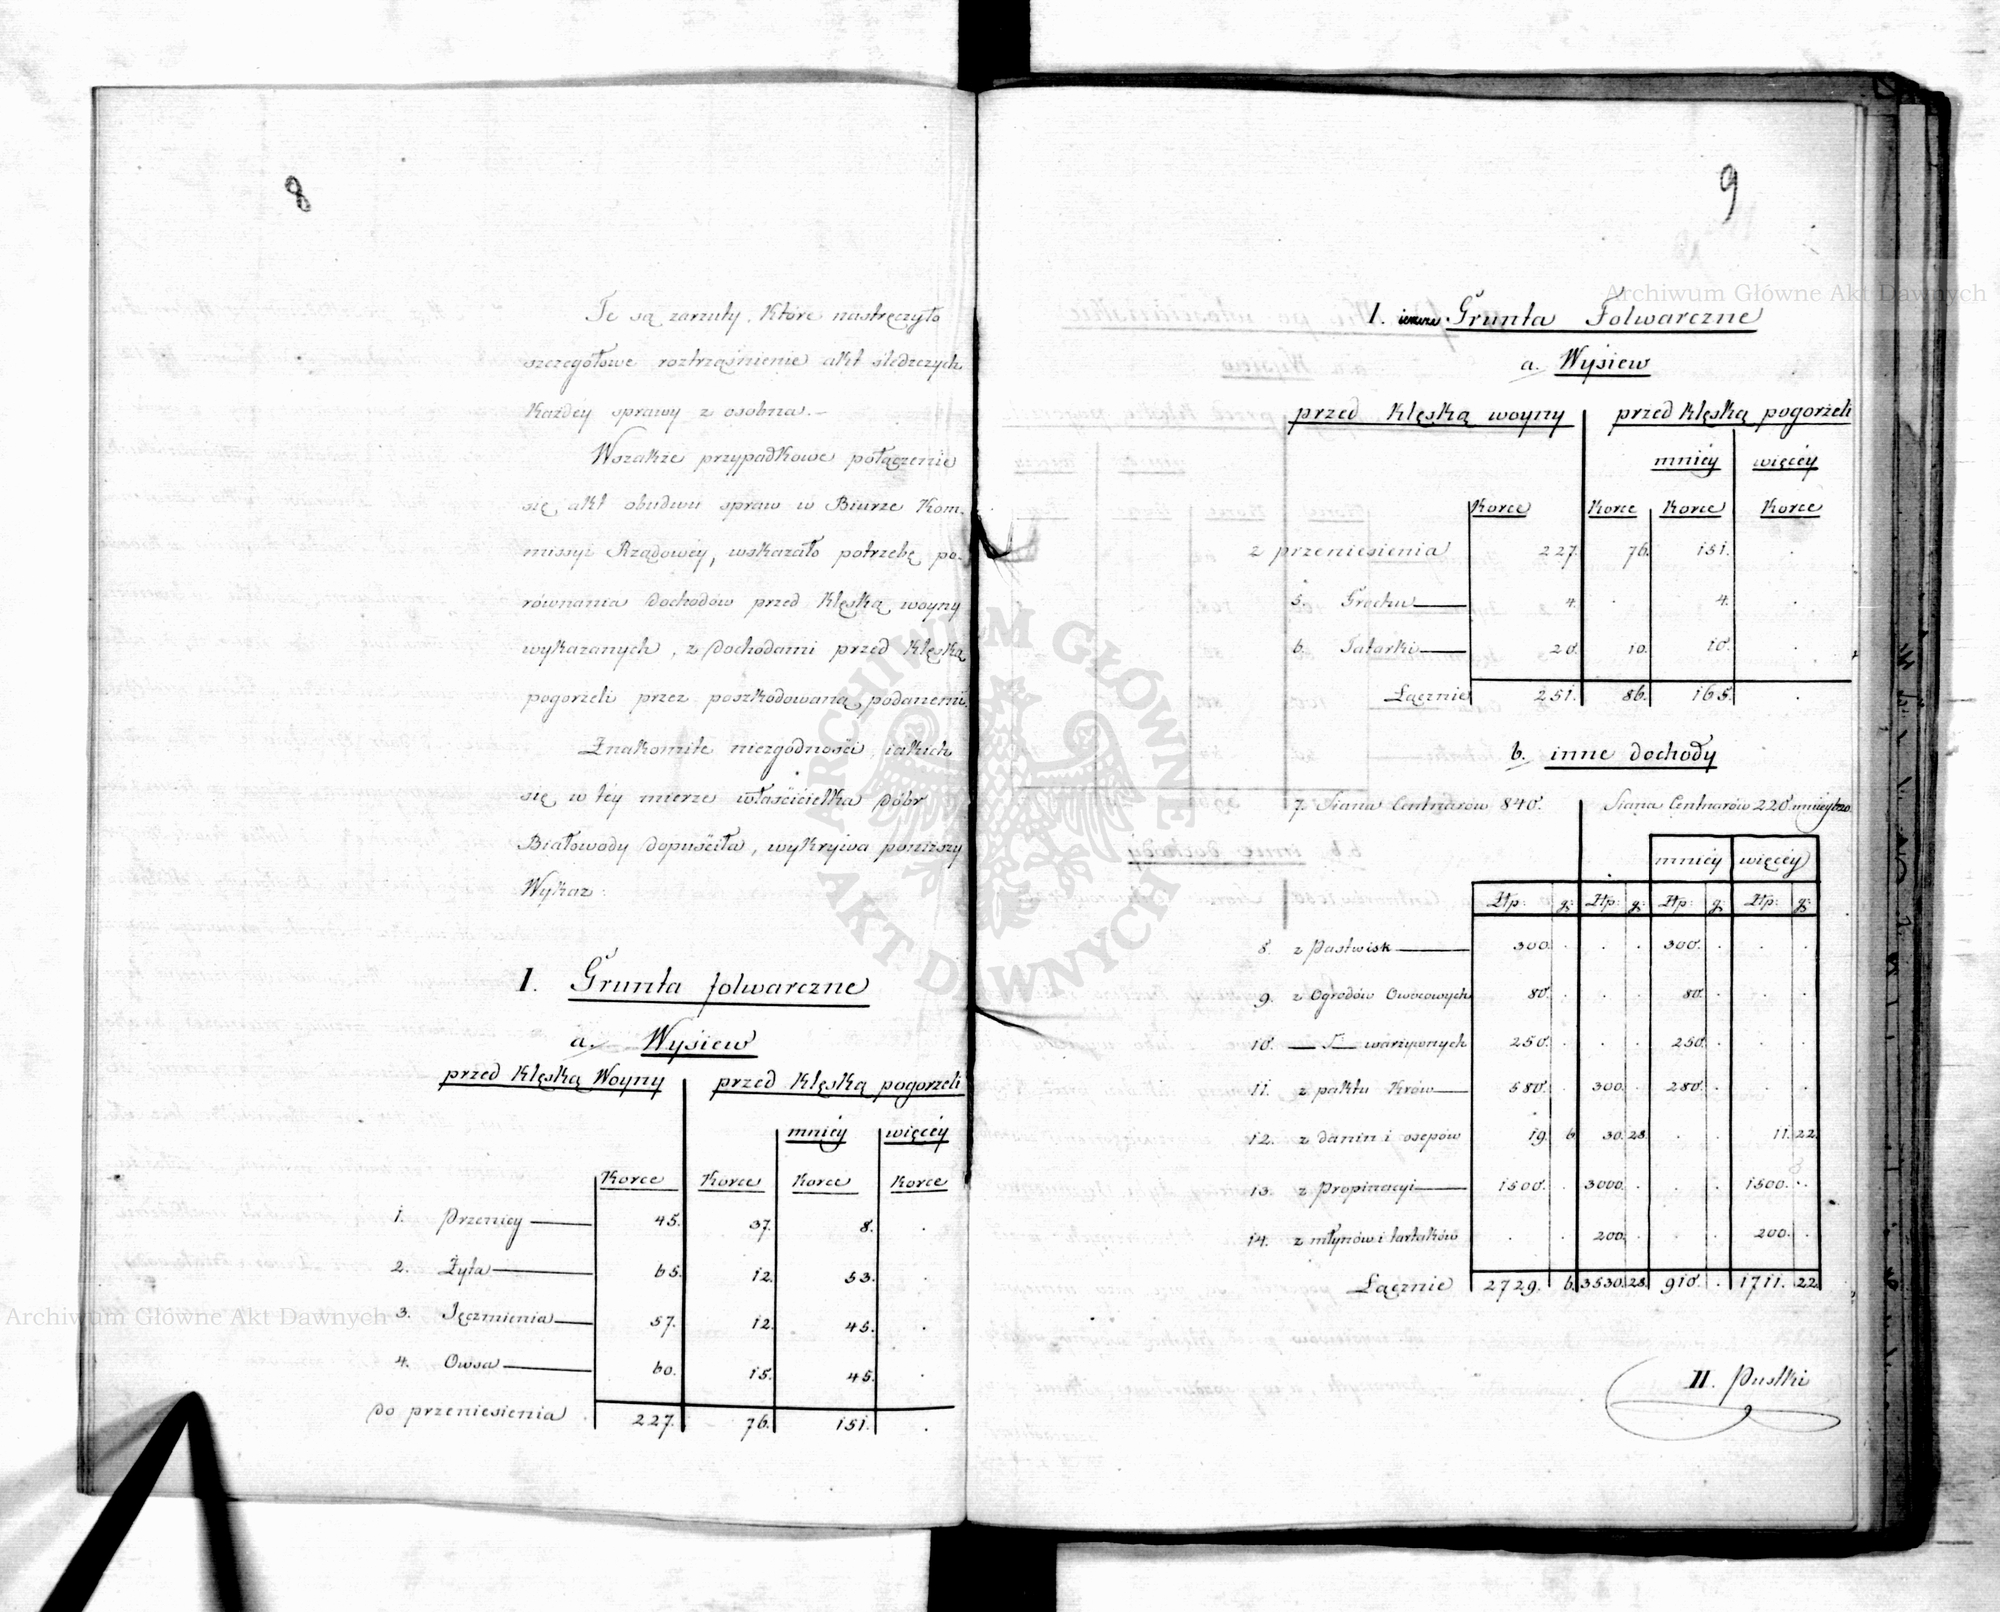 8
Te są zarzuty, które nastręczyło
szczegółowe roztrząśnienie akt śledzczych
każdéy sprawy z osobna.–
Wszakże przypadkowe połączenie
się akt obudwu spraw w Biurze Kom-
missyi Rządowéy, wskazało potrzebę po-
równania dochodów przed klęską woyny
wykazanych, z dochodami przed klęską
pogorzeli przez poszkodowaną podanemi.
Znakomite niezgodności, iakich
się w téy mierze właścicielka dóbr
Białowody dopuściła, wykrywa poniższy
Wykaz:
I. Grunta folwarczne
a. Wysiew
przed klęską Woyny przed klęską pogorzeli
mniéy więcéy
Korce Korce Korce Korce
1. Pszenicy 45. 37. 8. .
2. Żyta 65. 12. 53. .
3. Jęczmienia 57. 12. 45. .
4. Owsa 60. 15. 45. .
do przeniesienia 227. 76. 151. .
9
I. Grunta Folwarczne
a. Wysiew
przed klęską woyny przed klęską pogorzeli
mniéy więcéy
Korce Korce Korce Korce
z przeniesienia 227. 76. 151. .
5. Grochu 4. . 4. .
6. Tatarki 20. 10. 10. .
Łącznie 251. 86. 165. .
b. inne dochody
7. Siana Centnarów 840. Siana Centnarów 220. mniéy 620
mniéy więcéy
Złp: g: Złp: g: Złp: g: Złp: g:
8. z Pastwisk 300. . . . 300. . . .
9. z Ogrodów Owocowych 80. . . . 80. . . .
10. — d° — warzywnych 250. . . . 250. . . .
11. z paktu krów 580. . 300. . 280. . . .
12. z danin i osepów 19. 6 30. 28. . . 11. 22.
13. z Propinacyi 1500. . 3000. . . . 1500. .
14. z młynów i tartaków . . 200. . . . 200. .
Łącznie 2729. 6. 3530. 28. 910. . 1711. 22
II. Pustki
Archiwum Główne Akt Dawnych
Archiwum Główne Akt Dawnych
ARCHIWUM GŁÓWNE AKT DAWNYCH